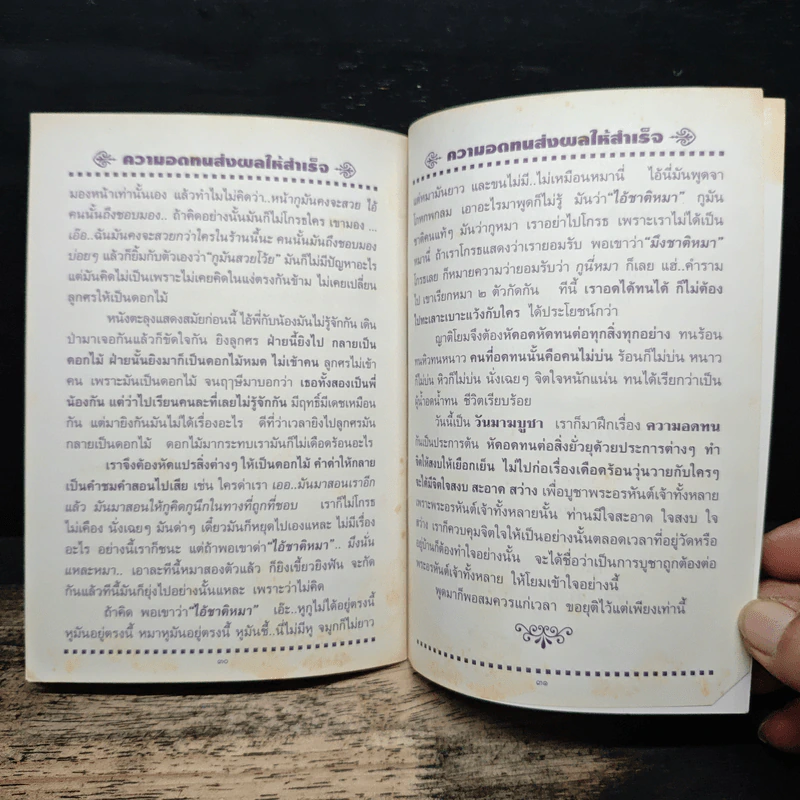 ความอดทนส่งผลให้สำเร็จ
มองหน้าเท่านั้นเอง แล้วทำไมไม่คิดว่า..หน้ากูมันคงจะสวย ไอ้
คนนั้นถึงชอบมอง.. ถ้าคิดอย่างนั้นมันก็ไม่โกรธใคร เขามอง ...
เอ๊อ..ฉันมันคงจะสวยกว่าใครในร้านนี้นะ คนนั้นมันถึงชอบมอง
บ่อยๆ แล้วก็ยิ้มกับตัวเองว่า“กูมันสวยโว้ย” มันก็ไม่มีปัญหาอะไร
แต่มันคิดไม่เป็นเพราะไม่เคยคิดในแง่ตรงกันข้าม ไม่เคยเปลี่ยน
ลูกศรให้เป็นดอกไม้
หนังตะลุงแสดงสมัยก่อนนี้ ไอ้พี่กับน้องมันไม่รู้จักกัน เดิน
ป่ามาเจอกันแล้วก็ขัดใจกัน ยิงลูกศร ฝ่ายนี้ยิงไป กลายเป็น
ดอกไม้ ฝ่ายนั้นยิงมาก็เป็นดอกไม้หมด ไม่เข้าคน ลูกศรไม่เข้า
คน เพราะมันเป็นดอกไม้ จนฤาษีมาบอกว่า เธอทั้งสองเป็นพี่
น้องกัน แต่ว่าไปเรียนคนละที่เลยไม่รู้จักกัน มีฤทธิ์มีเดชเหมือน
กัน แต่มายิงกันมันไม่ได้เรื่องอะไร ดีที่ว่าเวลายิงไปลูกศรมัน
กลายเป็นดอกไม้ ดอกไม้มากระทบเรามันก็ไม่เดือดร้อนอะไร
เราจึงต้องหัดแปรสิ่งต่างๆ ให้เป็นดอกไม้ คำด่าให้กลาย
เป็นคำชมคำสอนไปเสีย เช่น ใครด่าเรา เออ..มันมาสอนเราอีก
แล้ว มันมาสอนให้กูคิดกูนึกในทางที่ถูกที่ชอบ เราก็ไม่โกรธ
ไม่เคือง นั่งเฉยๆ มันด่าๆ เดี๋ยวมันก็หยุดไปเองแหละ ไม่มีเรื่อง
อะไร อย่างนี้เราก็ชนะ แต่ถ้าพอเขาด่า“ไอ้ชาติหมา”.. มึงนั่น
แหละหมา.. เอาละทีนี้หมาสองตัวแล้ว ก็ยิงเขี้ยวยิงฟัน จะกัด
กันแล้วทีนี้มันก็ยุ่งไปอย่างนั้นแหละ เพราะว่าไม่คิด
ถ้าคิด พอเขาว่า“ไอ้ชาติหมา” เอ๊ะ..หูกูไม่ได้อยู่ตรงนี้
หูมันอยู่ตรงนี้ หมาหูมันอยู่ตรงนี้ หูมันชี้..นี่ไม่มีหู จมูกก็ไม่ยาว
๓๐
ความอดทนส่งผลให้สำเร็จ
แต่หมามันยาว และขนไม่มี..ไม่เหมือนหมานี่ ไอ้นี่มันพูดจา
โกหกพกลม เอาอะไรมาพูดก็ไม่รู้ มันว่า“ไอ้ชาติหมา” กูมัน
ชาติคนแท้ๆ มันว่ากูหมา เราอย่าไปโกรธ เพราะเราไม่ได้เป็น
หมานี่ ถ้าเราโกรธแสดงว่าเรายอมรับ พอเขาว่า“มึงชาติหมา”
โกรธเลย ก็หมายความว่ายอมรับว่า กูนี่หมา ก็เลย แฮ่..คำราม
ไป เขาเรียกหมา ๒ ตัวกัดกัน ทีนี้ เราอดได้ทนได้ ก็ไม่ต้อง
ไปทะเลาะเบาะแว้งกับใคร ได้ประโยชน์กว่า
ญาติโยมจึงต้องหัดอดหัดทนต่อทุกสิ่งทุกอย่าง ทนร้อน
ทนหิวทนหนาว คนที่อดทนนั้นคือคนไม่บ่น ร้อนก็ไม่บ่น หนาว
ก็ไม่บ่น หิวก็ไม่บ่น นั่งเฉยๆ จิตใจหนักแน่น ทนได้เรียกว่าเป็น
ผู้น้ำอดน้ำทน ชีวิตเรียบร้อย
วันนี้เป็น วันมาฆบูชา เราก็มาฝึกเรื่อง ความอดทน
กันเป็นประการต้น หัดอดทนต่อสิ่งยั่วยุด้วยประการต่างๆ ทำ
จิตให้สงบให้เยือกเย็น ไม่ไปก่อเรื่องเดือดร้อนวุ่นวายกับใครๆ
จะได้มีจิตใจสงบ สะอาด สว่าง เพื่อบูชาพระอรหันต์เจ้าทั้งหลาย
เพราะพระอรหันต์เจ้าทั้งหลายนั้น ท่านมีใจสะอาด ใจสงบ ใจ
สว่าง เราก็ควบคุมจิตใจให้เป็นอย่างนั้นตลอดเวลาที่อยู่วัดหรือ
อยู่บ้านก็ต้องทำใจอย่างนั้น จะได้ชื่อว่าเป็นการบูชาถูกต้องต่อ
พระอรหันต์เจ้าทั้งหลาย ให้โยมเข้าใจอย่างนี้
พูดมาก็พอสมควรแก่เวลา ขอยุติไว้แต่เพียงเท่านี้
๓๑